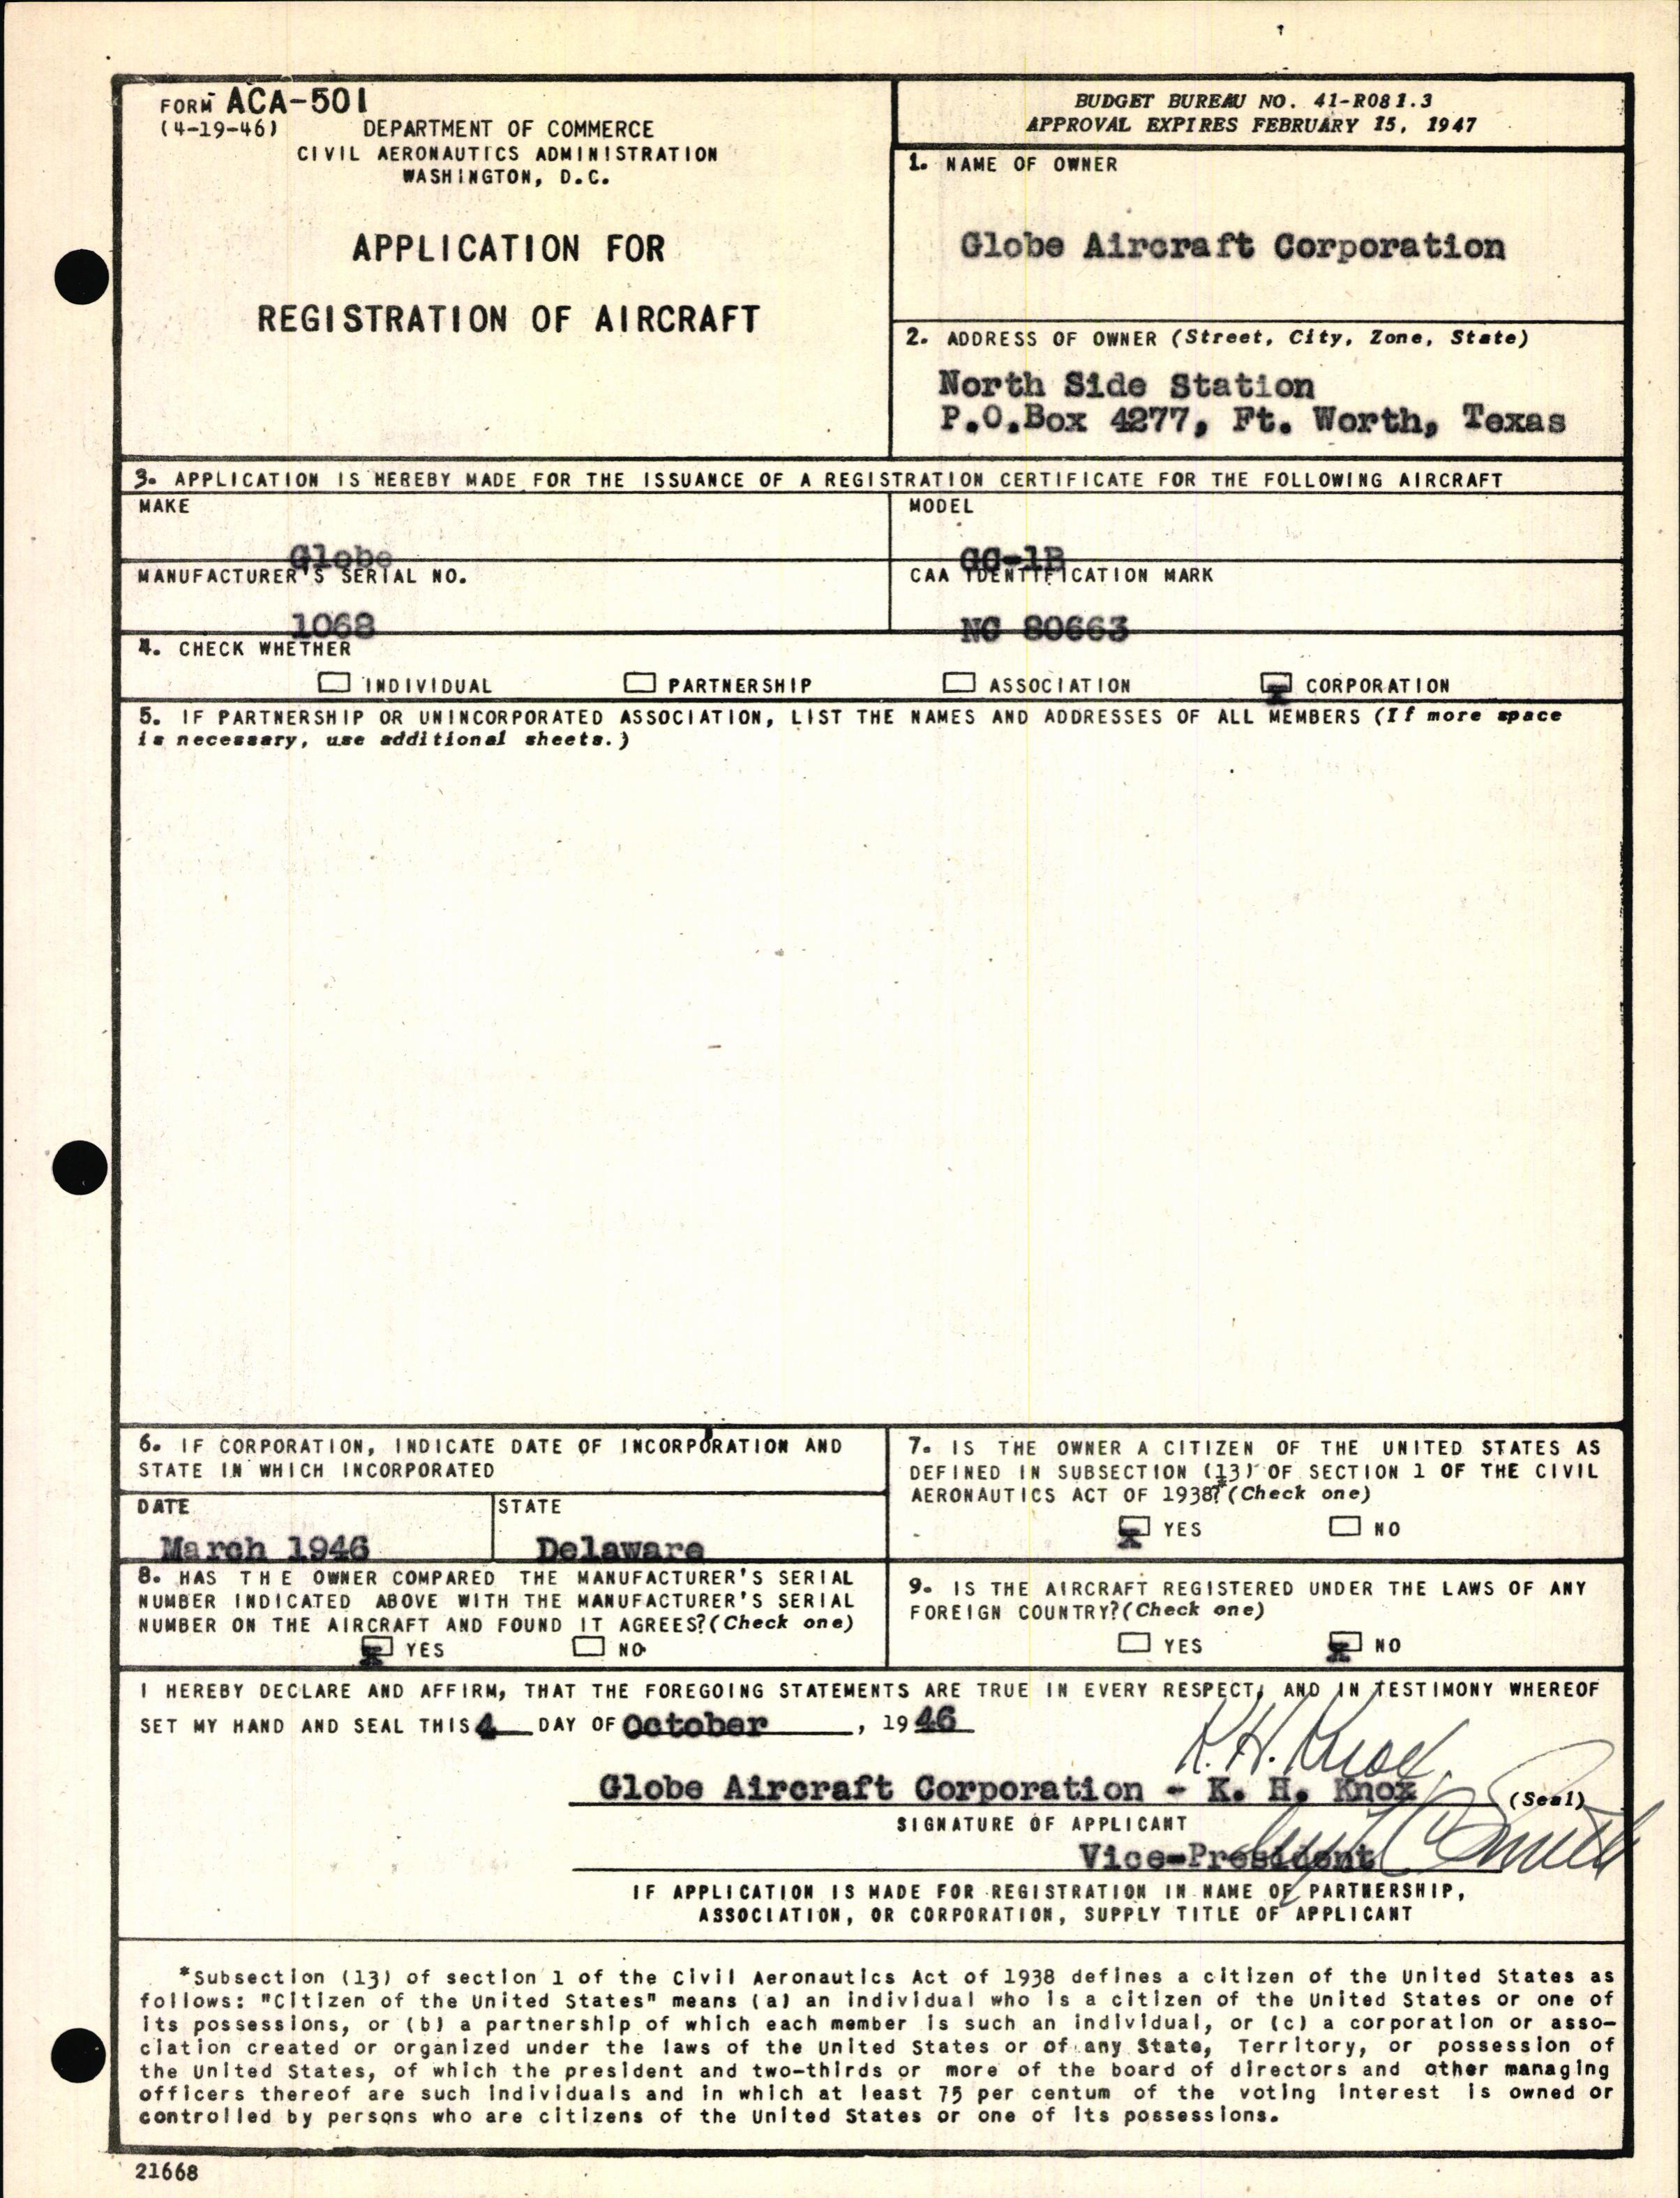 FORM ACA-501
(4-19-46)
DEPARTMENT OF COMMERCE
CIVIL AERONAUTICS ADMINISTRATION
WASHINGTON, D.C.
APPLICATION FOR
REGISTRATION OF AIRCRAFT
BUDGET BUREAU NO. 41-R081.3
APPROVAL EXPIRES FEBRUARY 15, 1947
1. NAME OF OWNER
Globe Aircraft Corporation
2. ADDRESS OF OWNER (Street, City, Zone, State)
North Side Station
P.O.Box 4277, Ft. Worth, Texas
3. APPLICATION IS HEREBY MADE FOR THE ISSUANCE OF A REGISTRATION CERTIFICATE FOR THE FOLLOWING AIRCRAFT
MAKE
Globe
MODEL
GC-1B
MANUFACTURER'S SERIAL NO.
1068
CAA IDENTIFICATION MARK
NC 80663
4. CHECK WHETHER
INDIVIDUAL PARTNERSHIP ASSOCIATION x CORPORATION
5. IF PARTNERSHIP OR UNINCORPORATED ASSOCIATION, LIST THE NAMES AND ADDRESSES OF ALL MEMBERS (If more space
is necessary, use additional sheets.)
6. IF CORPORATION, INDICATE DATE OF INCORPORATION AND
STATE IN WHICH INCORPORATED
DATE
March 1946
STATE
Delaware
7. IS THE OWNER A CITIZEN OF THE UNITED STATES AS
DEFINED IN SUBSECTION (13) OF SECTION 1 OF THE CIVIL
AERONAUTICS ACT OF 1938?* (Check one)
x YES NO
8. HAS THE OWNER COMPARED THE MANUFACTURER'S SERIAL
NUMBER INDICATED ABOVE WITH THE MANUFACTURER'S SERIAL
NUMBER ON THE AIRCRAFT AND FOUND IT AGREES? (Check one)
x YES NO
9. IS THE AIRCRAFT REGISTERED UNDER THE LAWS OF ANY
FOREIGN COUNTRY? (Check one)
YES x NO
I HEREBY DECLARE AND AFFIRM, THAT THE FOREGOING STATEMENTS ARE TRUE IN EVERY RESPECT, AND IN TESTIMONY WHEREOF
SET MY HAND AND SEAL THIS 4 DAY OF October, 1946
K.H. Knox
Globe Aircraft Corporation - K. H. Knox (Seal)
SIGNATURE OF APPLICANT
Vice-President
IF APPLICATION IS MADE FOR REGISTRATION IN NAME OF PARTNERSHIP,
ASSOCIATION, OR CORPORATION, SUPPLY TITLE OF APPLICANT
*Subsection (13) of section 1 of the Civil Aeronautics Act of 1938 defines a citizen of the United States as
follows: "Citizen of the United States" means (a) an individual who is a citizen of the United States or one of
its possessions, or (b) a partnership of which each member is such an individual, or (c) a corporation or asso-
ciation created or organized under the laws of the United States or of any State, Territory, or possession of
the United States, of which the president and two-thirds or more of the board of directors and other managing
officers thereof are such individuals and in which at least 75 per centum of the voting interest is owned or
controlled by persons who are citizens of the United States or one of its possessions.
21668